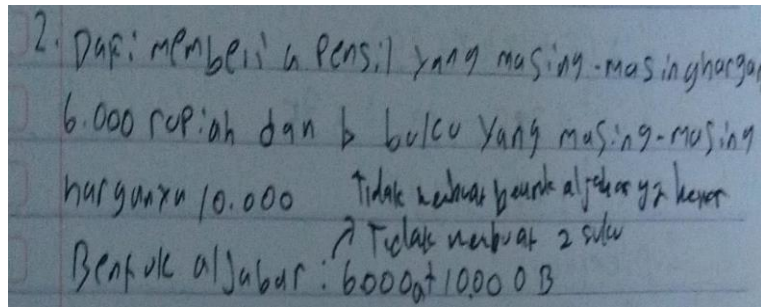 2. Dafi membeli a Pensil yang masing-masing harga
6.000 rupiah dan b buku yang masing-masing
harganya 10.000
Tidak membuat bentuk aljabar yg benar
Tidak membuat 2 suku
Bentuk aljabar : 6.000a + 10.000 B